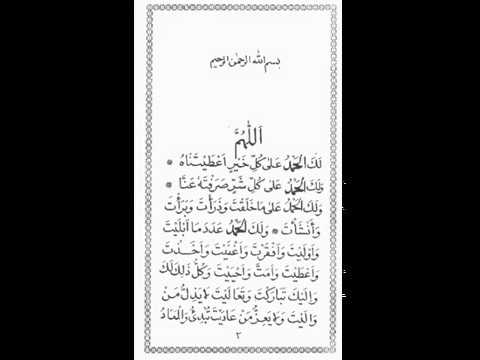 بسم الله الرحمن الرحيم
اَللّٰهُمَّ
لَكَ الْحَمْدُ عَلٰى كُلِّ خَيْرٍ اَعْطَيْتَنَاهُ *
وَلَكَ الْحَمْدُ عَلٰى كُلِّ شَرٍّ صَرَفْتَهٗ عَنَّا *
وَلَكَ الْحَمْدُ عَلٰى مَا خَلَقْتَ وَذَرَأْتَ وَبَرَأْتَ
وَأَنْشَأْتَ * وَلَكَ الْحَمْدُ عَدَدَ مَا اَبْلَيْتَ
وَاَوْلَيْتَ وَاَفْقَرْتَ وَاَغْنَيْتَ وَاَخَذْتَ
وَاَعْطَيْتَ وَاَمَتَّ وَاَحْيَيْتَ وَكُلُّ ذٰلِكَ لَكَ
وَاِلَيْكَ تَبَارَكْتَ وَتَعَالَيْتَ لَا يَذِلُّ مَنْ
وَالَيْتَ وَلَا يَعِزُّ مَنْ عَادَيْتَ تُبْدِئُ وَالْمَعَادُ
٢